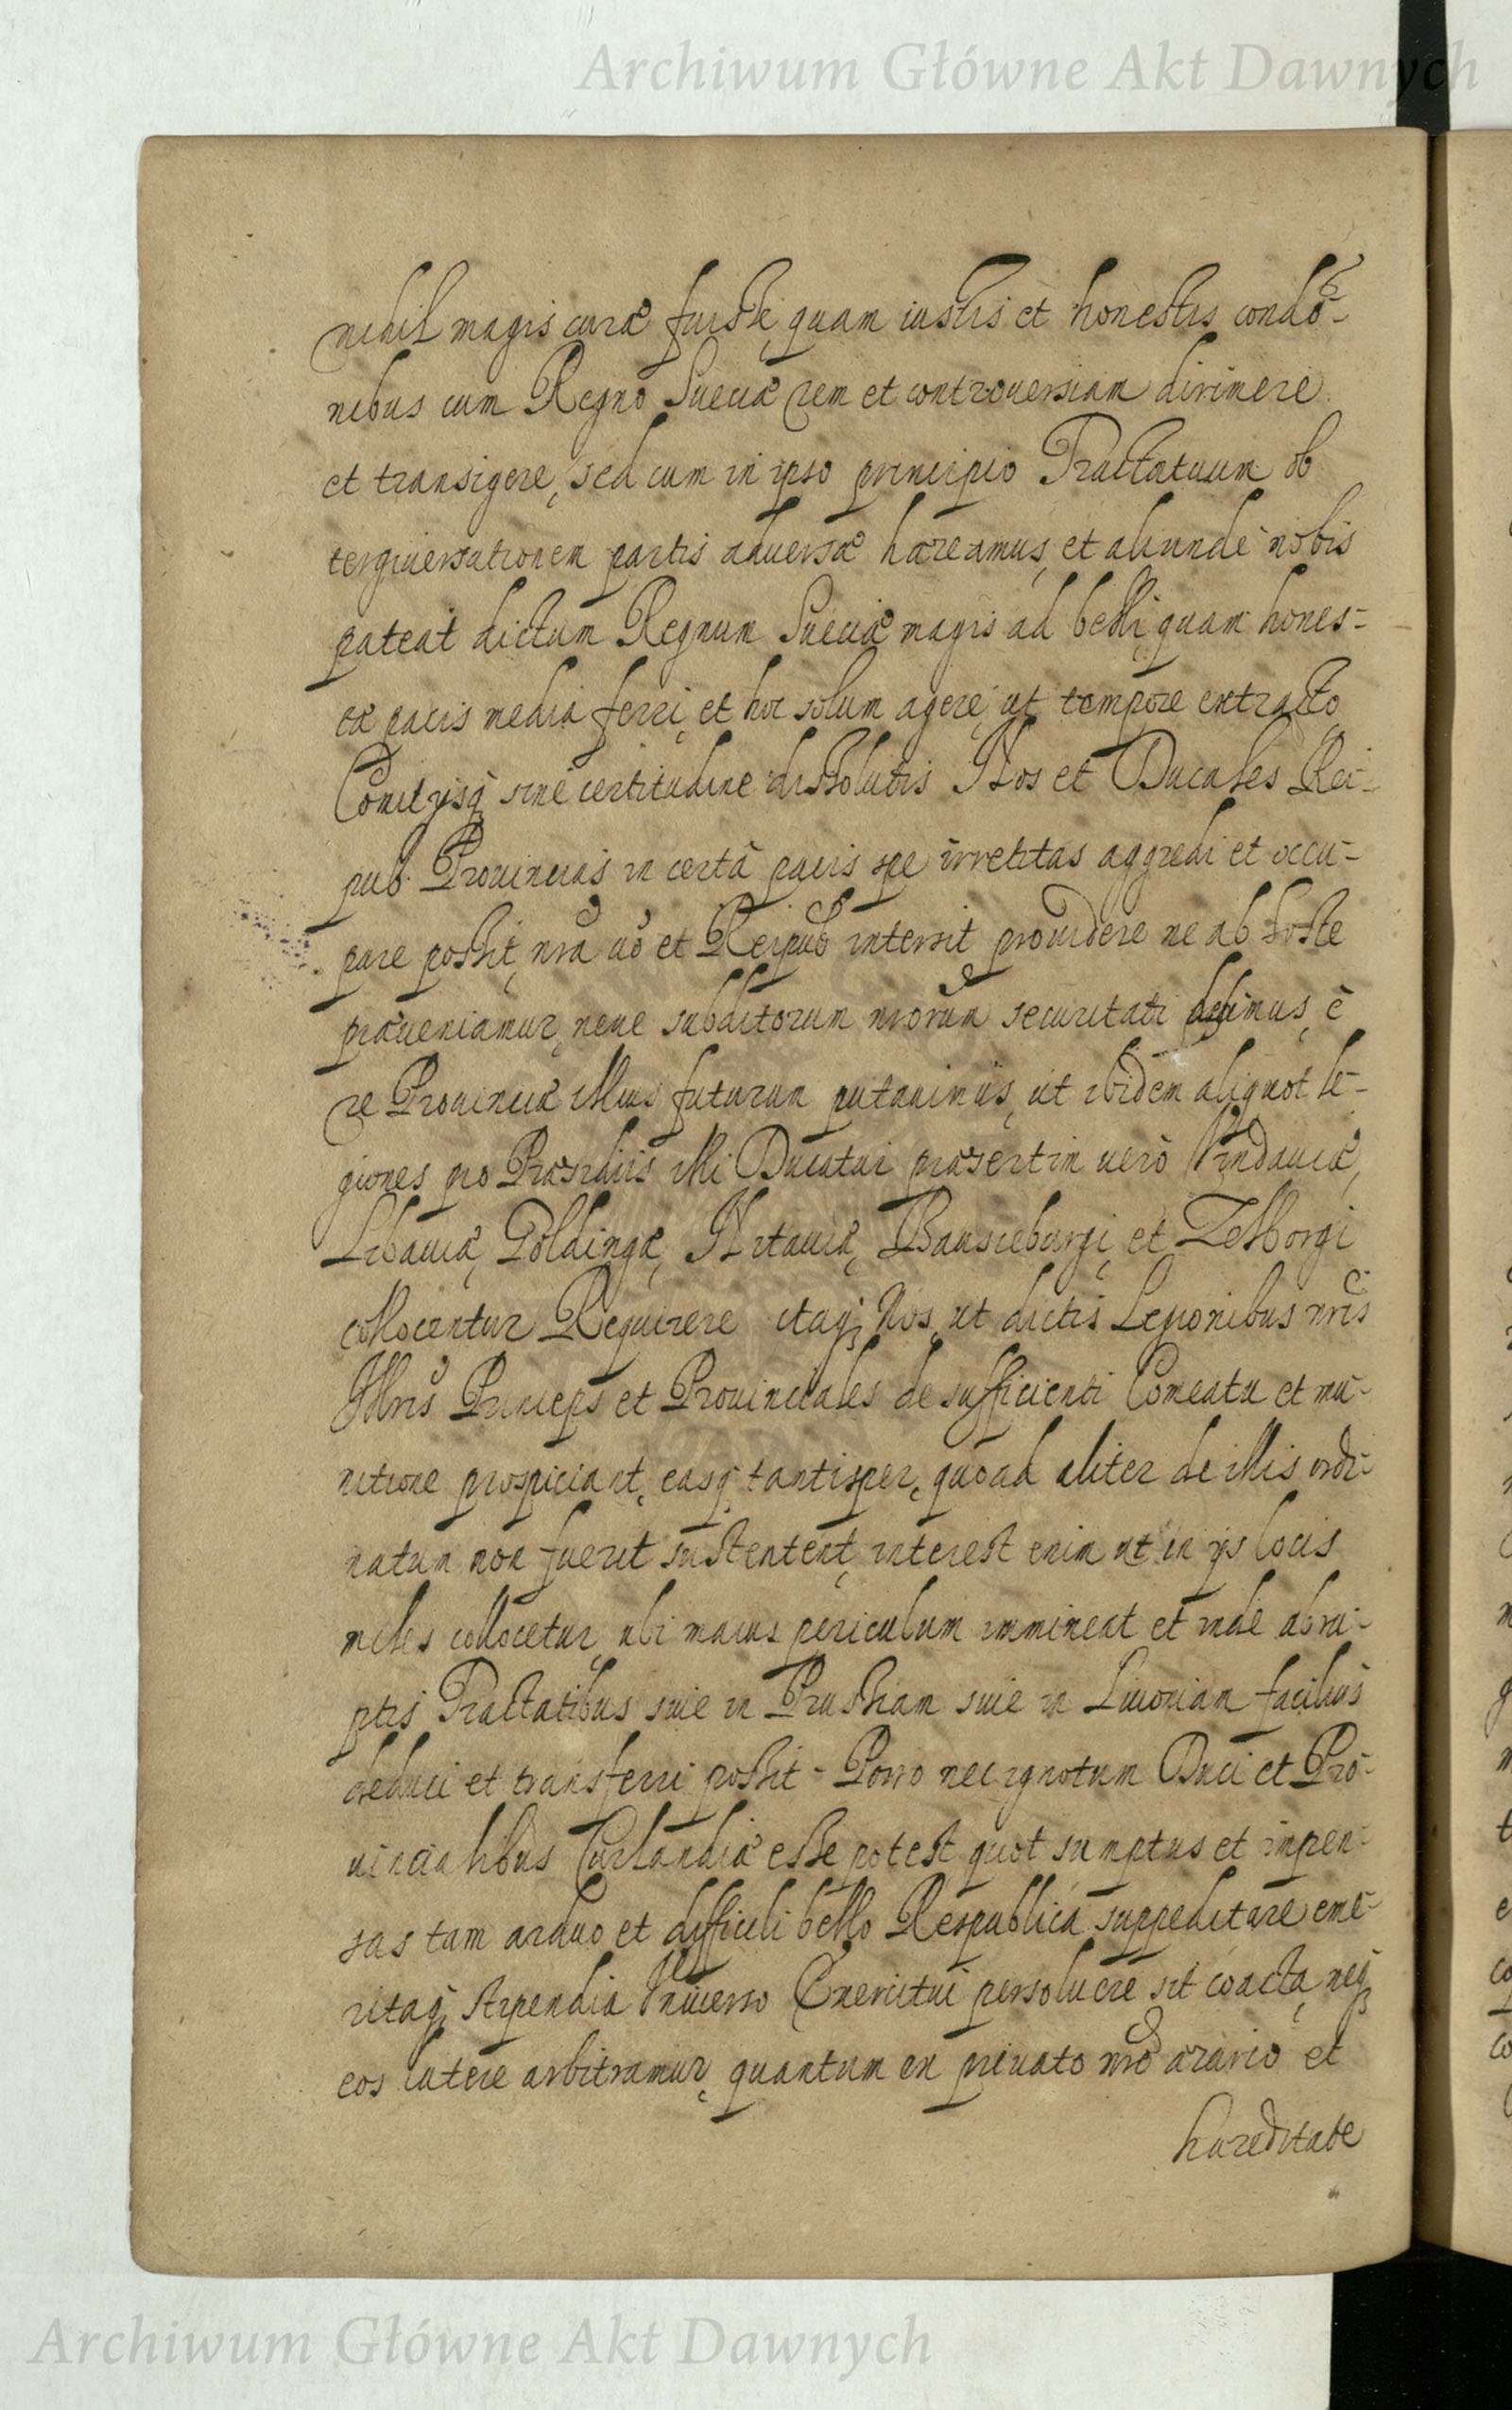 Archiwum Główne Akt Dawnych
nihil magis curæ fuisse, quam iustis et honestis condō-
nibus cum Regno Sueciæ rem et controuersiam dirimere
et transigere, sed cum in ipso principio Tractatuum ob
tergiuersationem partis aduersæ hæreamus, et aliunde nobis
pateat dictum Regnum Sueciæ magis ad belli, quam hones-
tæ pacis media ferri, et hoc solum agere, ut tempore extracto
Comitijsq sine certitudine dissolutis Nos et Ducales Rei-
pub. Prouincias incertâ pacis spe irretitas aggredi et occu-
pare possit, nrã uō et Reipub intersit prouidere ne ab hoste
præueniamur, neue subditorum nrorum securitati desimus, è
re Prouinciæ illius futurum putauimus, ut ibidem aliquot le-
giones pro Præsidiis illi Ducatui præsertim uerò Vindauiæ,
Libauiæ, Goldingæ, Mitauiæ, Bauscieburgi, et Selborgi
collocentur Requirere itaq Nos, ut dictis Legionibus nris
Illris Princeps et Prouinciales de sufficienti Comeatu et mu-
nitione prospiciant, easq tantisper, quoad aliter de illis ordi-
natum non fuerit sustentent, interest enim ut in ijs locis
miles collocetur, ubi maius periculum immineat et inde abru-
ptis Tractatibus siue in Prussiam siue in Liuoniam facilius
deduci et transferri possit - Porro nec ignotum Duci et Pro-
uincialibus Curlandiæ esse potest quot sumptus et impen-
sas tam arduo et difficili bello Respublica suppeditare eme-
ritaq stipendia Vniuerso Exercitui persoluere sit coacta, neq
eos latere arbitramur, quantum ex priuato nrō ærario et
hæreditate
Archiwum Główne Akt Dawnych